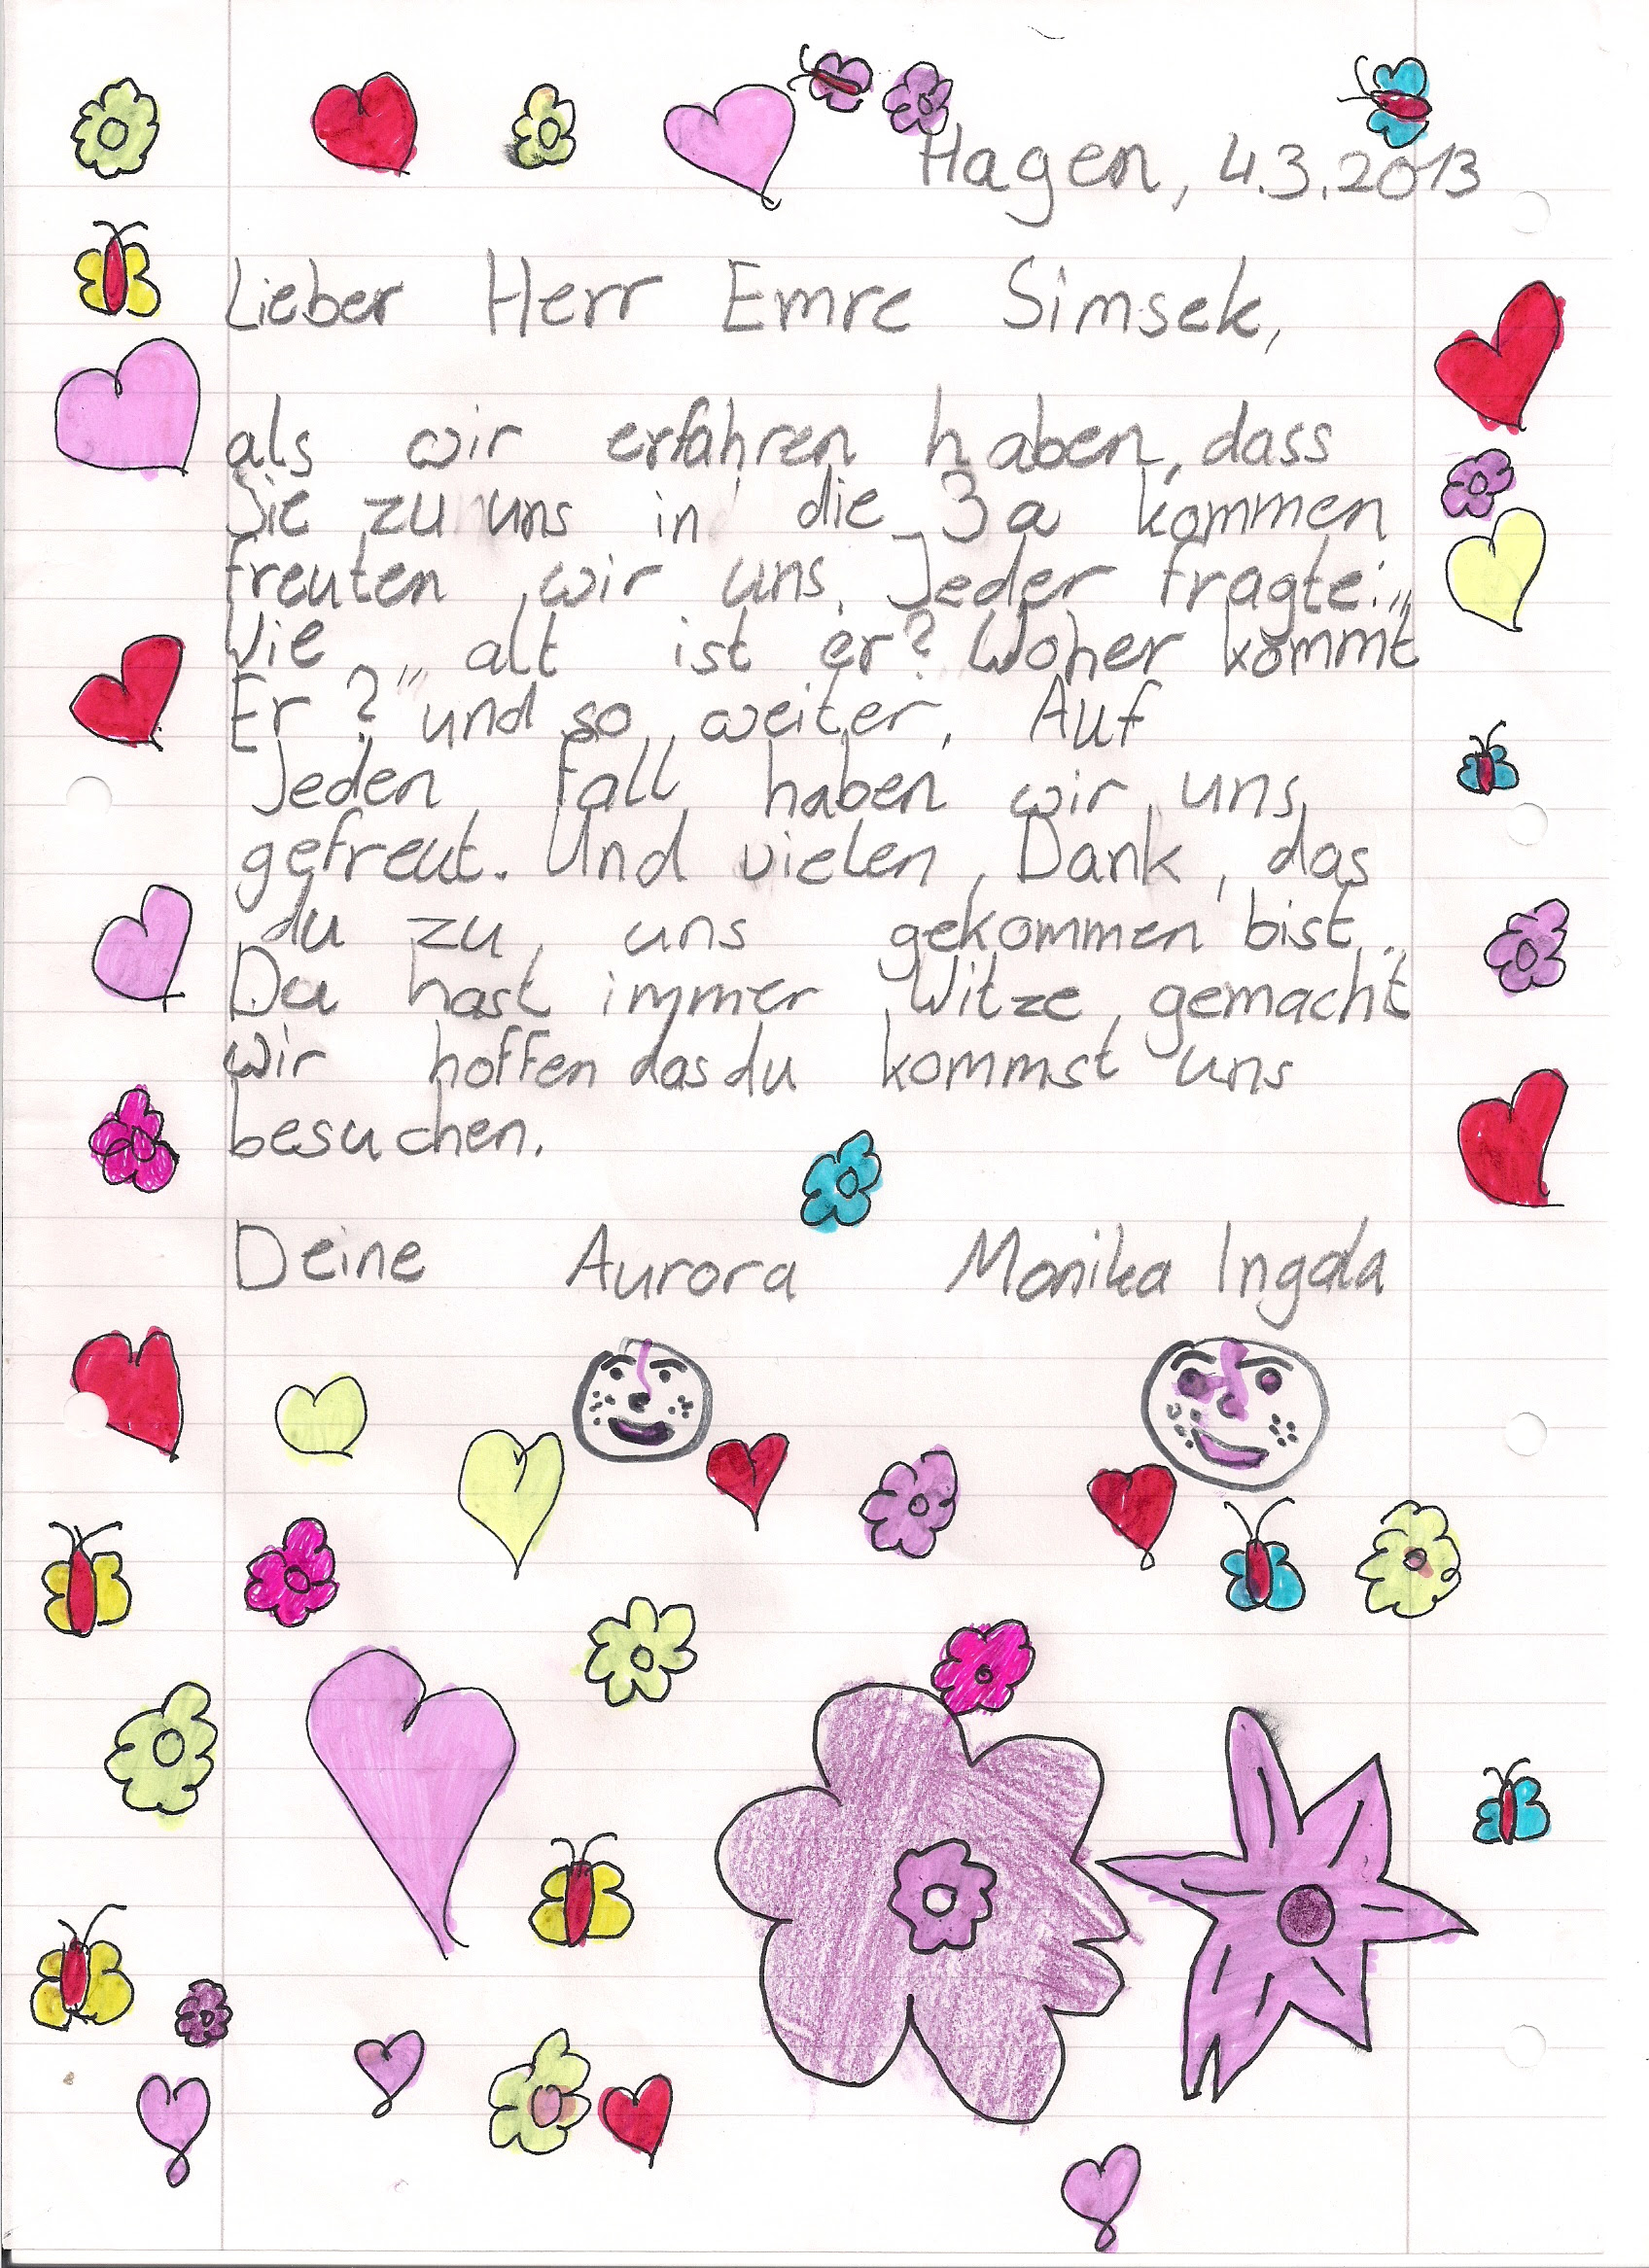 Hagen, 4.3.2013
Lieber Herr Emre Simsek,
als wir erfahren haben, dass
Sie zu uns in die 3a kommen
freuten wir uns. Jeder fragte: „
Wie alt ist er? Woher kommt
Er?" und so weiter. Auf
Jeden Fall haben wir uns
gefreut. Und vielen Dank, das
du zu uns gekommen bist.
Du hast immer Witze gemacht
wir hoffen das du kommst uns
besuchen.
Deine Aurora Monika Ingala